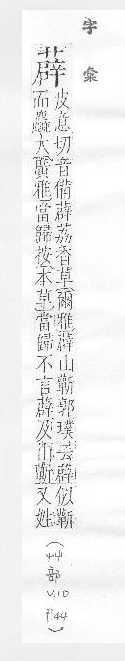 字彙
薜
皮意切音備薜荔香草爾雅薜山蘄郭璞云薜似蘄
而麤大廣雅當歸按本草當歸不言薜及山蘄又姓
(艸部 V.10 P.44)